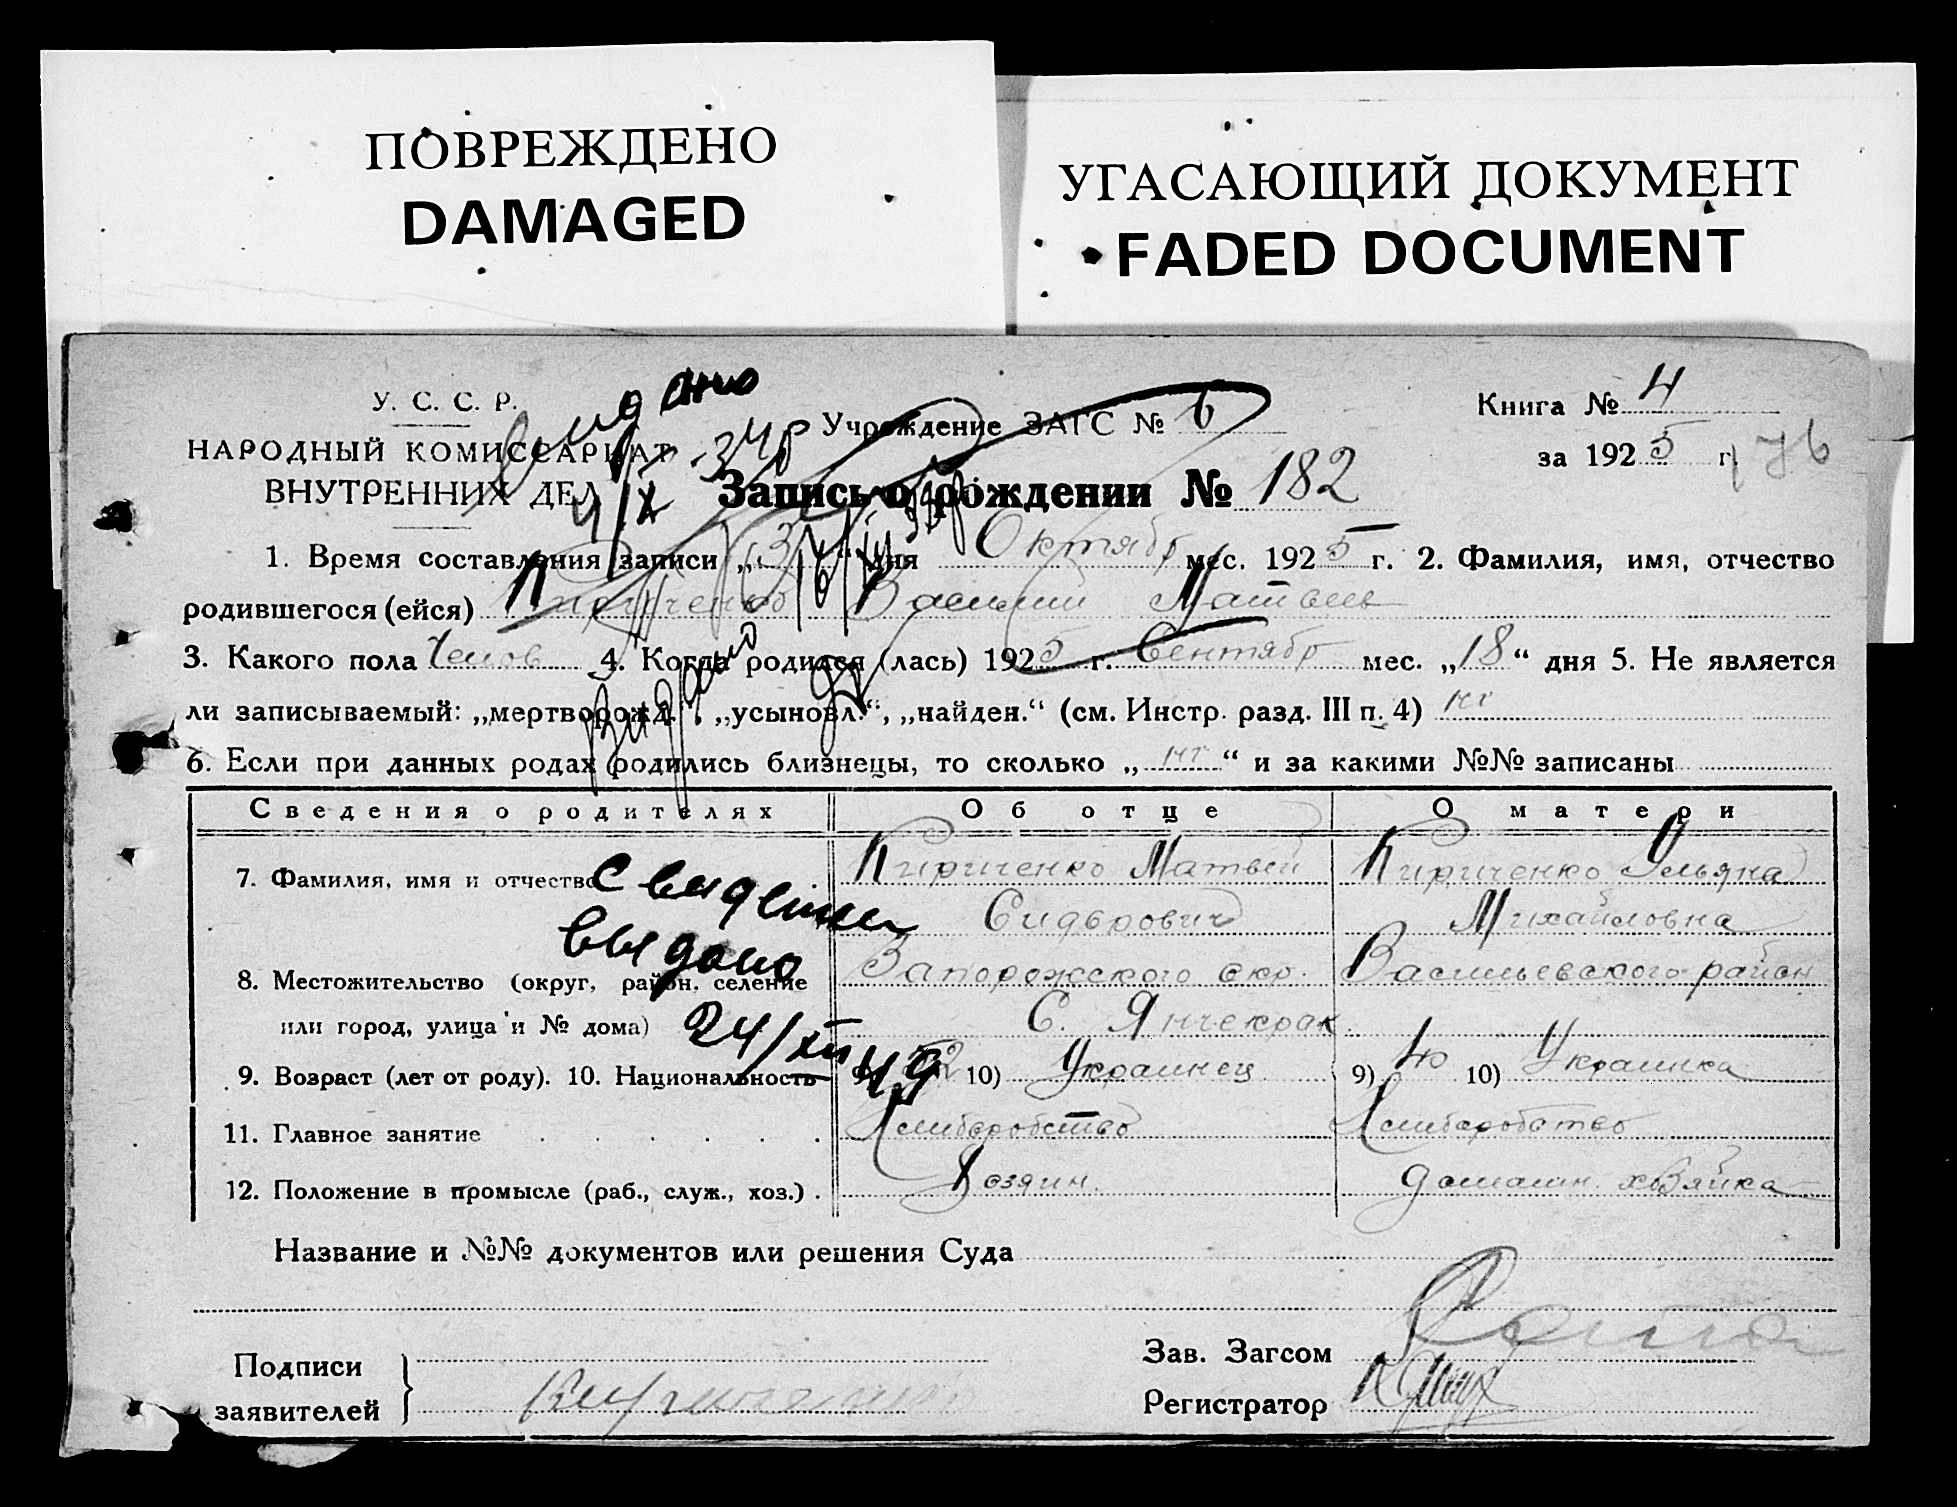 ПОВРЕЖДЕНО
DAMAGED
УГАСАЮЩИЙ ДОКУМЕНТ
FADED DOCUMENT
У. С. С. Р.
НАРОДНЫЙ КОМИССАРИАТ
ВНУТРЕННИХ ДЕЛ
Видано
Учреждение ЗАГС № 6
Книга № 4
за 1925 г.
Запись о рождении № 182
1. Время составления записи „3“ дня Октябр мес. 1925 г. 2. Фамилия, имя, отчество
родившегося (ейся) Кириченко Василий Матвеев
3. Какого пола Челов 4. Когда родился (лась) 1925 г. Сентябр мес. „18“ дня 5. Не является
ли записываемый: „мертворожд.“, „усыновл.“, „найден.“ (см. Инстр. разд. III п. 4) нт
Видано
6. Если при данных родах родились близнецы, то сколько „нт“ и за какими №№ записаны
Сведения о родителях Об отце О матери
7. Фамилия, имя и отчество Кириченко Матвей Кириченко Ульяна
Сидорович Михайловна
выдано
8. Местожительство (округ, район, селение Запорожского окр. Васильевского район
или город, улица и № дома) С. Янчекрак
24/XII 49
9. Возраст (лет от роду). 10. Национальность 9) 52 10) Украинец 9) 40 10) Украинка
11. Главное занятие Хлиборобство Хлиборобство
12. Положение в промысле (раб., служ., хоз.) Хозяин. домашн. хозяйка
Название и №№ документов или решения Суда
Зав. Загсом
Подписи
заявителей
Регистратор